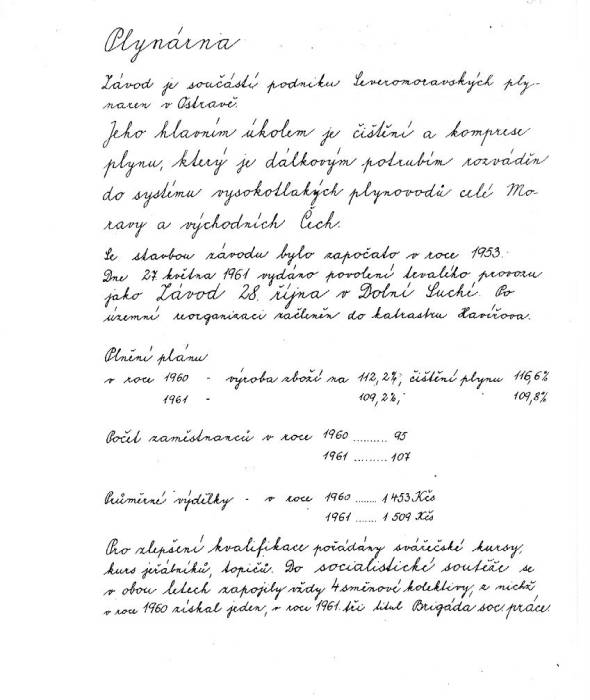 Plynárna
Závod je součástí podniku Severomoravských ply-
naren v Ostravě.
Jeho hlavním úkolem je čištění a komprese
plynu, který je dálkovým potrubím rozváděn
do systému vysokotlakých plynovodů celé Mo-
ravy a východních Čech.
Se stavbou závodu bylo započato v roce 1953.
Dne 27. května 1961 vydáno povolení trvalého provozu
jako Závod 28. října v Dolní Suché. Po
územní reorganizaci začleněn do katastru Havířova.
Plnění plánu
v roce 1960 - výroba zboží na 112,2%, čištění plynu 116,6%
1961 - 109,2%, 109,8%
Počet zaměstnanců v roce 1960 .......... 95
1961 ......... 107
Průměrné výdělky - v roce 1960 ....... 1 453 Kčs
1961 ....... 1 509 Kčs
Pro zlepšení kvalifikace pořádány svářečské kursy,
kurs jeřábníků, topičů. Do socialistické soutěže se
v obou letech zapojily vždy 4 směnové kolektivy, z nichž
v roce 1960 získal jeden, v roce 1961 tři titul Brigáda soc. práce.